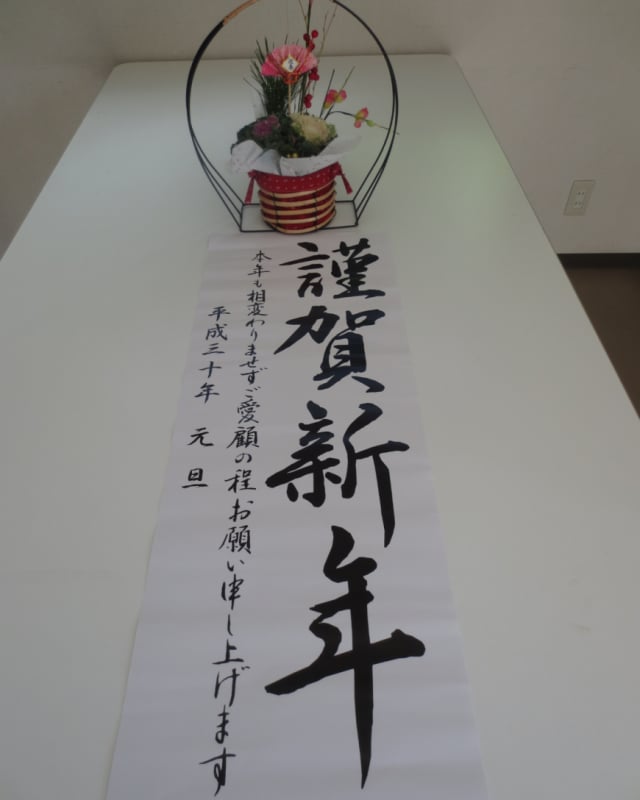 謹賀新年
本年も相変わりませずご愛顧の程お願い申し上げます
平成三十年 元旦